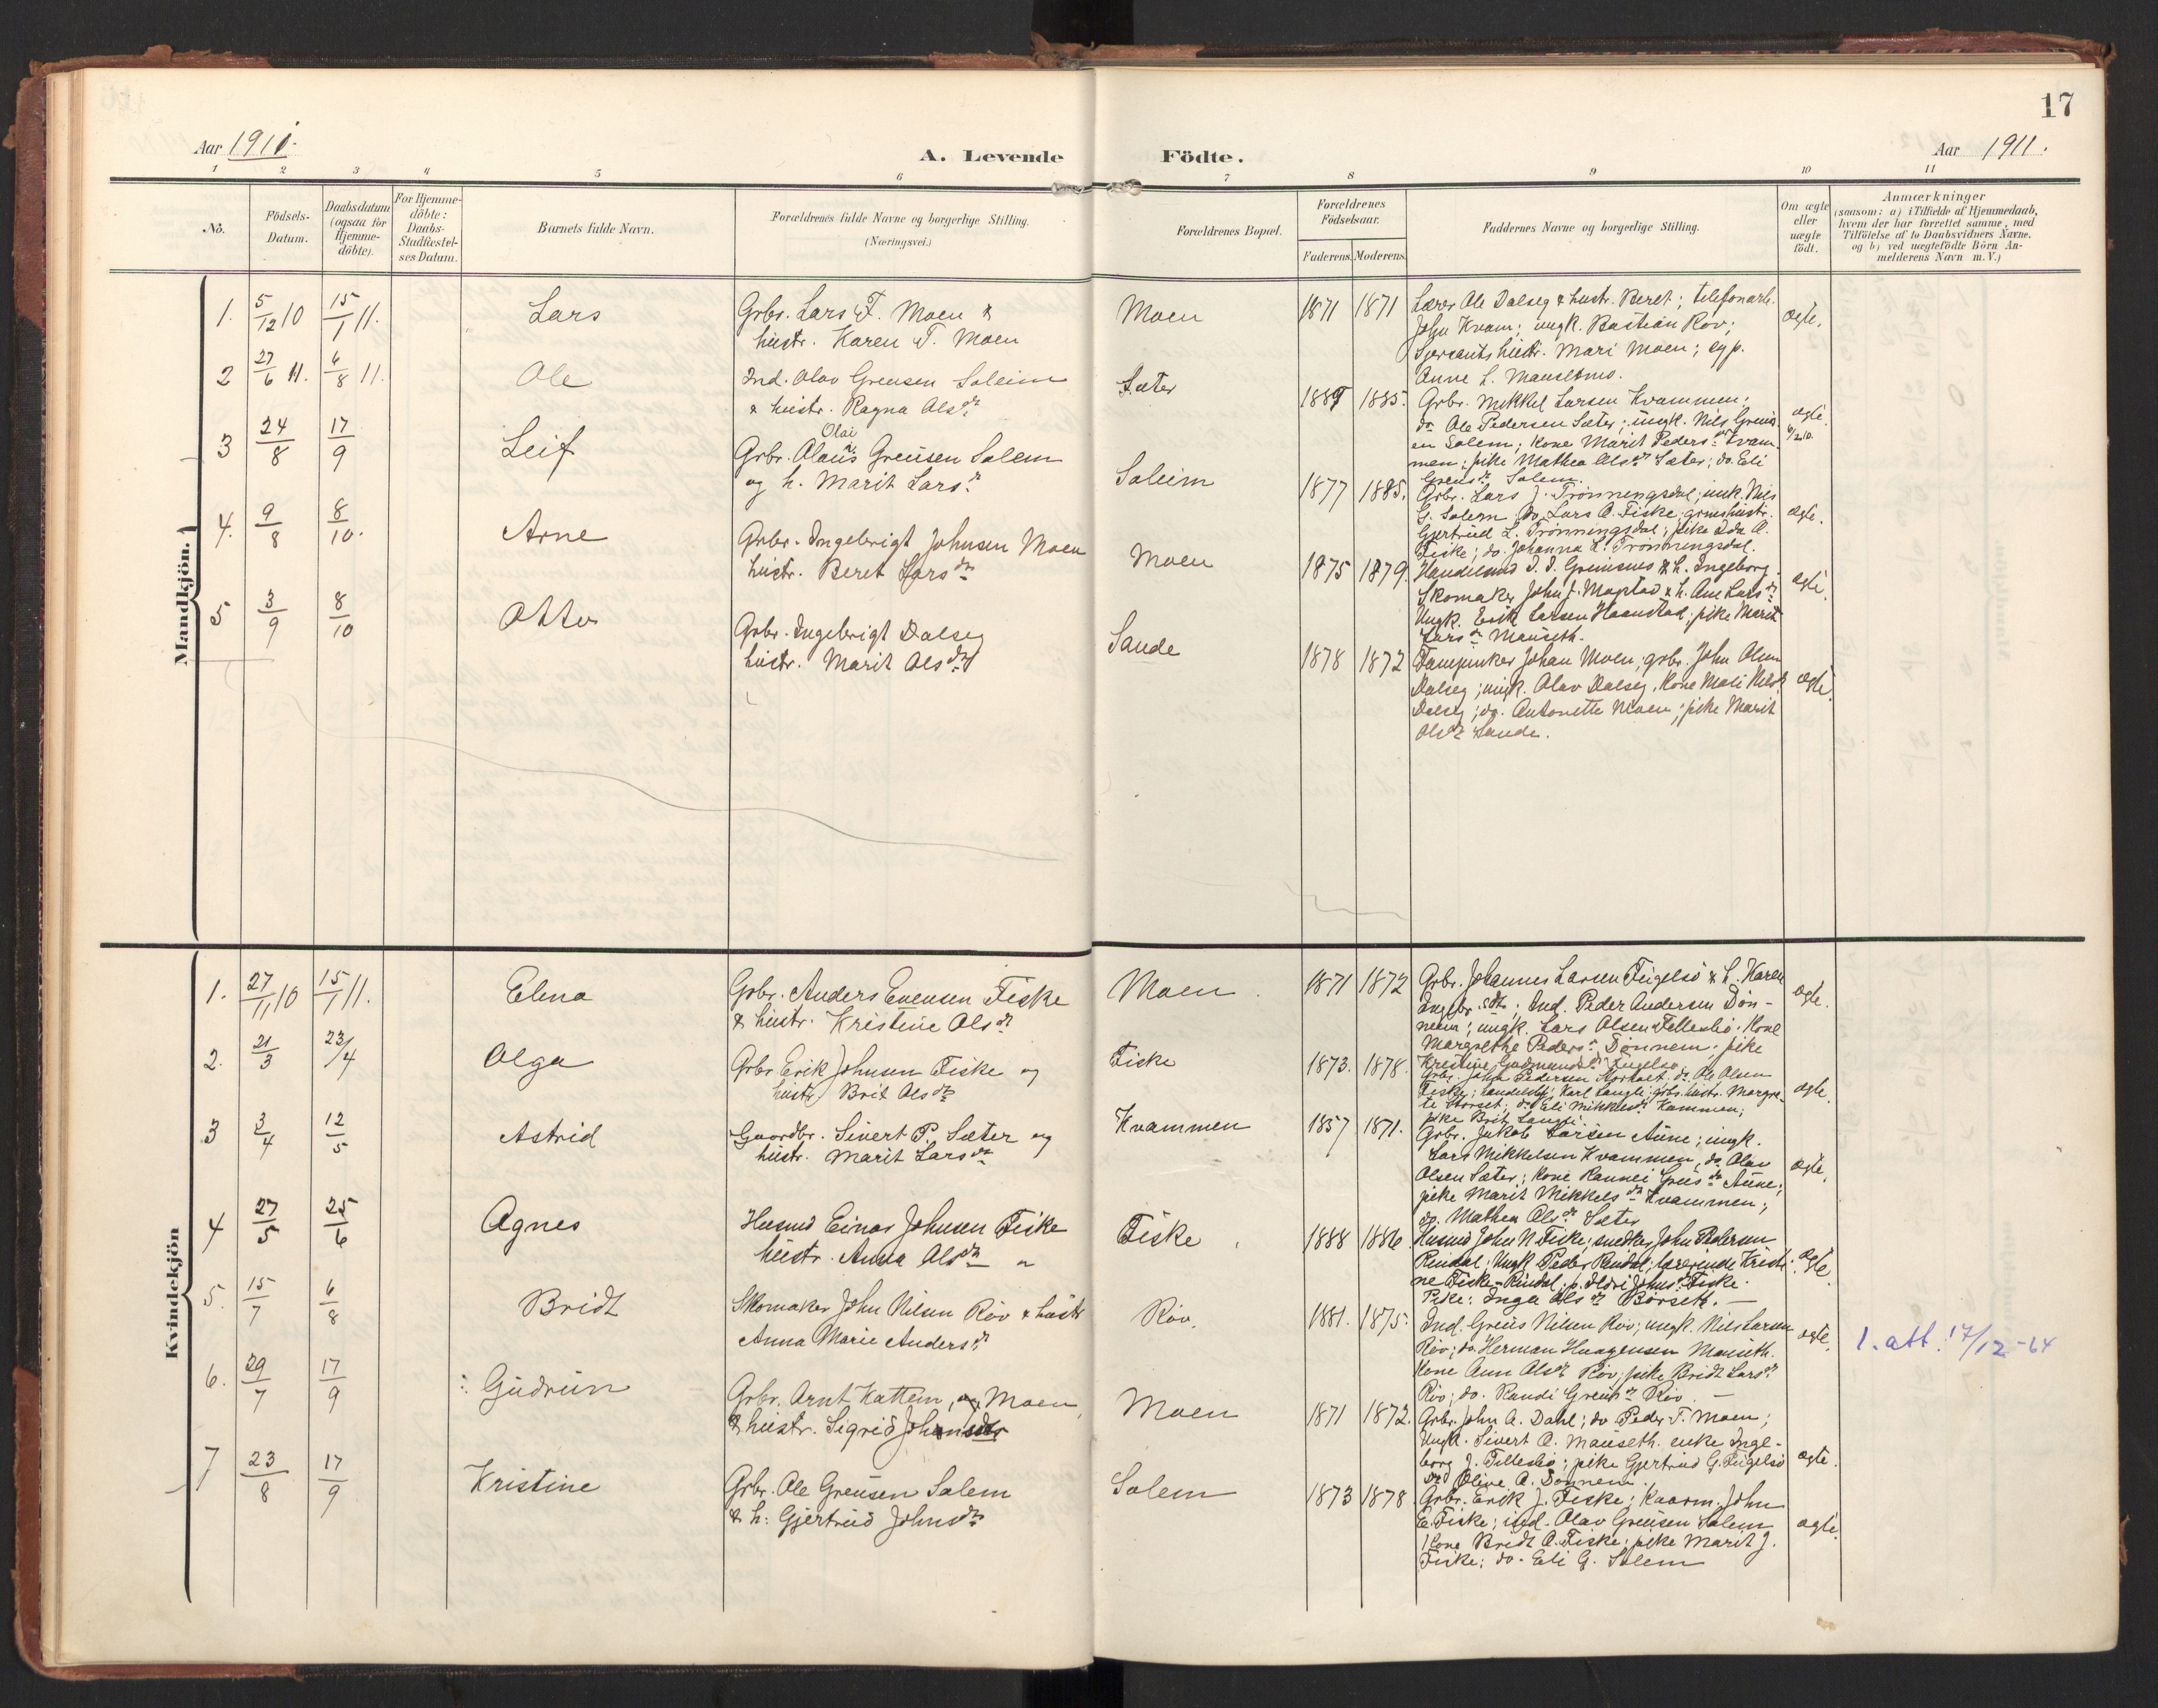 17
Aar 1911.
A. Levende Födte.
Aar 1911.
1 2 3 4 5 6 7 8 9 10 11
No.
Födsels-
Datum.
Daabsdatum
(ogsaa for
Hjemme-
döbte).
For Hjemme-
döbte:
Daabs-
Stadfæstel-
ses Datum.
Barnets fulde Navn.
Forældrenes fulde Navne og borgerlige Stilling.
(Næringsvei.)
Forældrenes Bopæl.
Forældrenes
Födselsaar.
Faderens. Moderens.
Faddernes Navne og borgerlige Stilling.
Om ægte
eller
uægte
födt.
Anmærkninger
(saasom: a) i Tilfælde af Hjemmedaab,
hvem der har forrettet samme, med
Tilföielse af to Daabsvidners Navne.
og b) ved uægtefödte Börn An-
melderens Navn m. V.)
Mandkjön.
1. 5/12 10 15/1 11. Lars
Grbr. Lars T. Moen &
hustr. Karen T. Moen
Moen 1871 1871
Lærer Ole Dalseg & hustr. Beret; telefonarb.
John Kvam; ungk. Bastian Röv;
Sersants hustr. Mari Moen; egp.
Anne L. Mausetmo.
ægte.
2 27/6 11. 6/8 11. Ole
Ind. Olav Greusen Soleim
& hustr. Ragna Olsdr.
Sæter 1885.
Grbr. Mikkel Larsen Kvammen;
do Ole Pedersen Sæter; ungk. Nils Greus-
en Solem; kone Marit Pedersdr Kvam-
men; pike Mathea Olsdr Sæter; do. Eli
Greusdr Solem.
ægte.
3 24/8 17/9 Leif
Olai
Grbr. Olaus Greusen Solem
og h. Marit Larsdr
Soleim 1877 1885.
Grbr. Lars J. Trönningsdal; unk. Nils
G. Solem; do Lars O. Fiske; hustr.
Gjertrud L. Trönningsdal; pike Ida A.
Fiske; do. Johanna L. Trönningsdal.
ægte.
4. 9/8 8/10. Arne
Grbr. Ingebrigt Johnsen Moen
hustr. Beret Larsdr
Moen 1875 1879.
Handelsmd & h. Ingeborg.
Skomaker John J. & h. Ane Larsdr
Ungk. Erik Larsen Haanstad; pike Marit
Larsdr Mauseth.
ægte.
5 3/9 8/10 Otto
Grbr. Ingebrigt Dalseg
hustr. Marit Olsdr
Sande 1878 1872
Fanejunker Johan Moen; grbr. John Olsen
Dalseg; ungk. Olav Dalseg. Kone Mali Nilsdr
Dalseg; do. Antonette Moen; pike Marit
Olsdr Sande.
ægte.
Kvindekjön
1. 27/11 10 15/1 11. Elena
Grbr. Anders Evensen Fiske
& hustr. Kristine Olsdr
Moen 1871 1872
Grbr. Johannes Larsen Fugelsö & h. Karen
Ingebr.sdtr.; Ind. Peder Andersen Dön-
nem; ungk. Lars Olsen Tellesbö; Kone
Margrethe Pedersdr Dönnem; pike
Kristine Gudmundsdr Fugelsö
ægte.
2. 21/3 23/4 Olga
Grbr Erik Johnsen Fiske og
hustr Brit Olsdr
Fiske 1873. 1878.
Grbr. John Pedersen Storset; do Ole Olsen
Fiske; Karl Langli; grbr. hustr. Margre-
te Storset; do Eli Mikkelsdr Kammen;
pike Brit Langli.
ægte.
3 3/4 12/5 Astrid
Gaardbr. Sivert P. Sæter og
hustr. Marit Larsdr
Kvammen 1857 1871.
Grbr. Jakob Larsen Aune; ungk.
Lars Mikkelsen Kvammen, do Olav
Olsen Sæter; kone Rannei Greusdr Aune;
pike Marit Mikkelsdr Kvammen;
do. Mathea Olsdr Sæter
ægte.
4 27/5 25/6 Agnes
Husmd Einar Johnsen Fiske
hustr. Anna Olsdr
Fiske 1888 1886.
Husmd John N Fiske; snedker John Pedersen
Rindal; Ungk Peder Rindal; lærerinde Kristi-
ne Fiske-Rindal; p. Johnsdr Fiske.
Pike: Inga Olsdr Börseth. —
ægte.
5. 15/7 6/8 Bridt
Skomaker John Nilsen Röv & hustr
Anna Marie Andersdr
Röv. 1881. 1875.
Ind. Greus Nilsen Röv; ungk. Nils Larsen
Röv; do. Herman Haagensen Mauseth.
Kone Ann Olsdr Röv; pike Bridt Larsdr
Röv; do. Randi Greusdr Röv. —
ægte.
1. att. 17/12-64
6. 29/7 17/9 Gudrun
Grbr. Arnt Kattem, Moen,
& hustr. Sigrid Johnsdtr
Moen 1871 1872.
Grbr. John A. Dahl; do Peder T. Moen;
Ungk. Sivert O. Mauseth. enke Inge-
borg J. Tellesbö; pike Gjertrud G. Fugelsö
do Olive A. Dönnem.
ægte.
7 23/8 17/9 Kristine
Grbr. Ole Greusen Solem
& h: Gjertrud Johnsdr
Solem 1873 1878
Grbr. Erik J. Fiske; Kaarm. John
E. Fiske; ind. Olav Greusen Solem
Kone Bridt O. Fiske; pike Marit J.
Fiske; do. Eli G. Solem
ægte.